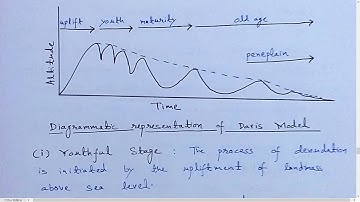 uplift youth maturity old age
peneplain
Altitude
Time
Diagrammatic representation of Davis Model
(i) Youthful Stage : The process of denudation
is initiated by the upliftment of landmass
above sea level.